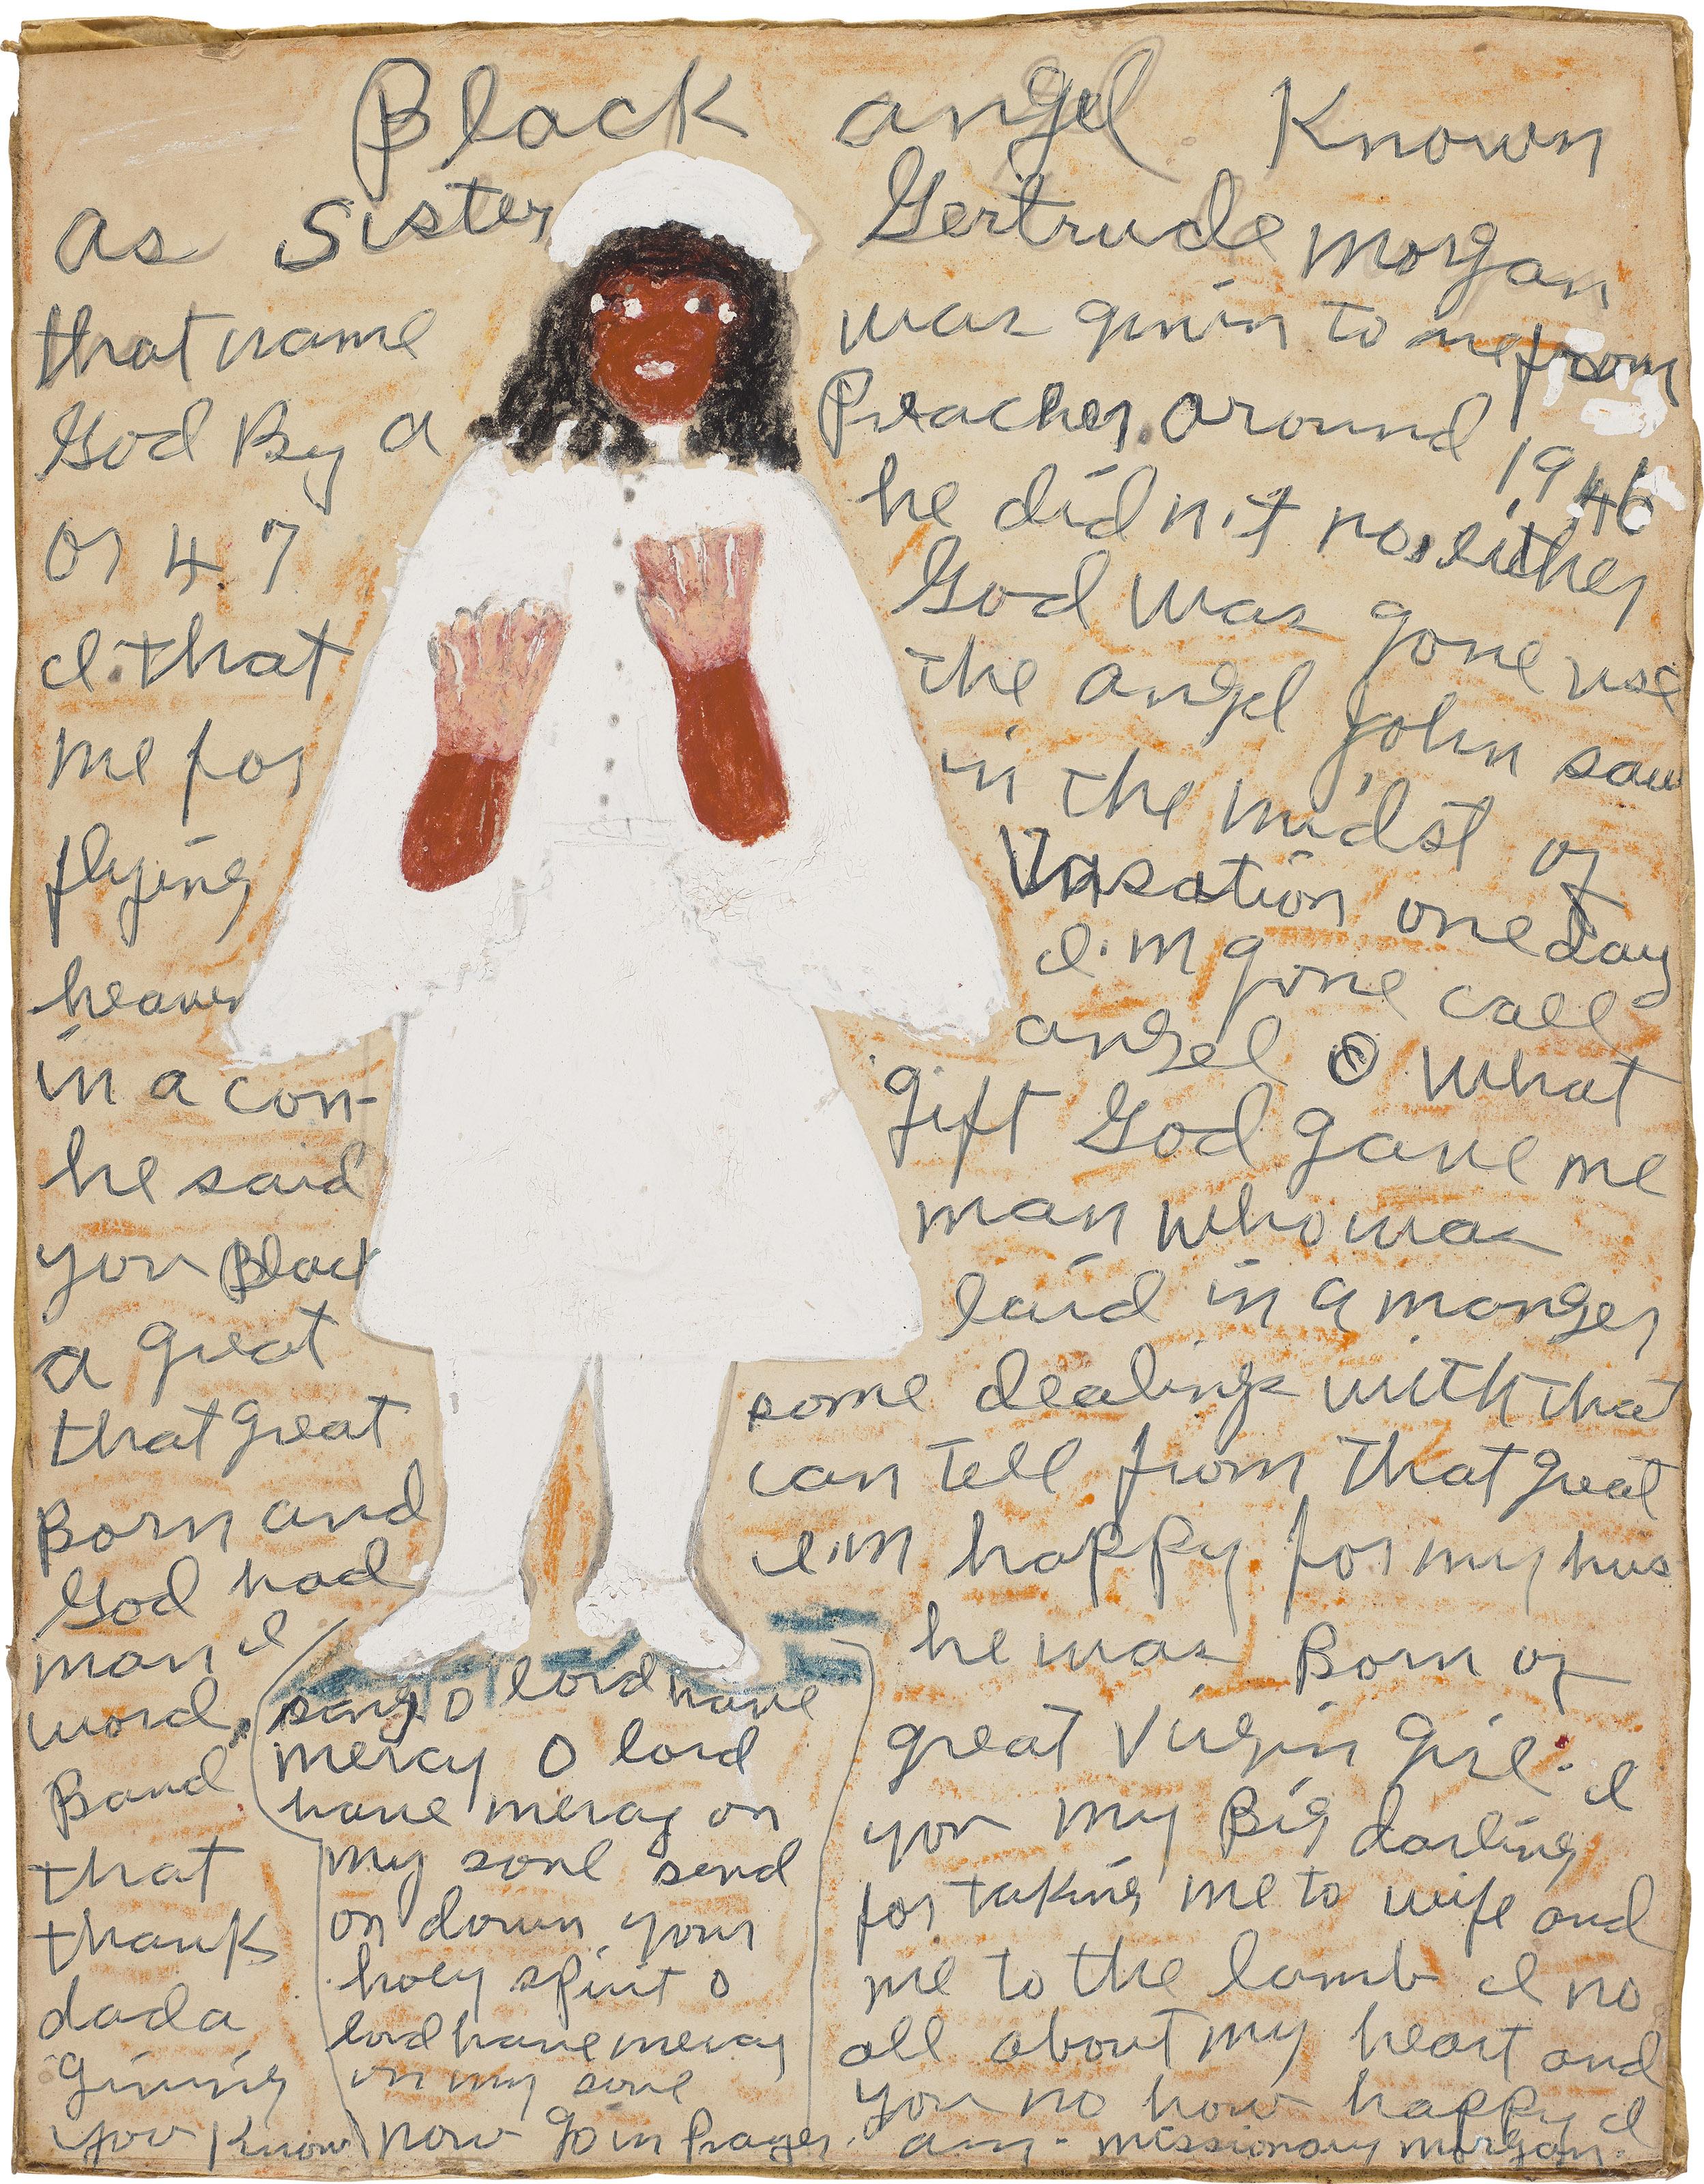 Black angel Known
as Sister Gertrude morgan
that name was givin to me from
God By a Preacher. around 1946
or 47 he did n't no either
I that God was gone use
me for the angel John saw
flying in the midst of
heaven
in a con- Vasation one day
he said I'm gone call
you Black angel O What
a great gift God gave me
that great man who was
Born and laid in a manger
God had some dealings with that
man I can tell from that great
word. I'm happy for my hus
Band he was Born of
that great virgin girl. I
thank you my Big darling
dada for taking me to wife and
giving me to the lamb I no
you Know all about my heart and
you no how happy I
am - missionary morgan.
sang o lord have
mercy O lord
have mercy on
my soul send
on down your
holy spirit o
lord have mercy
on my soul
now go in Prayer.